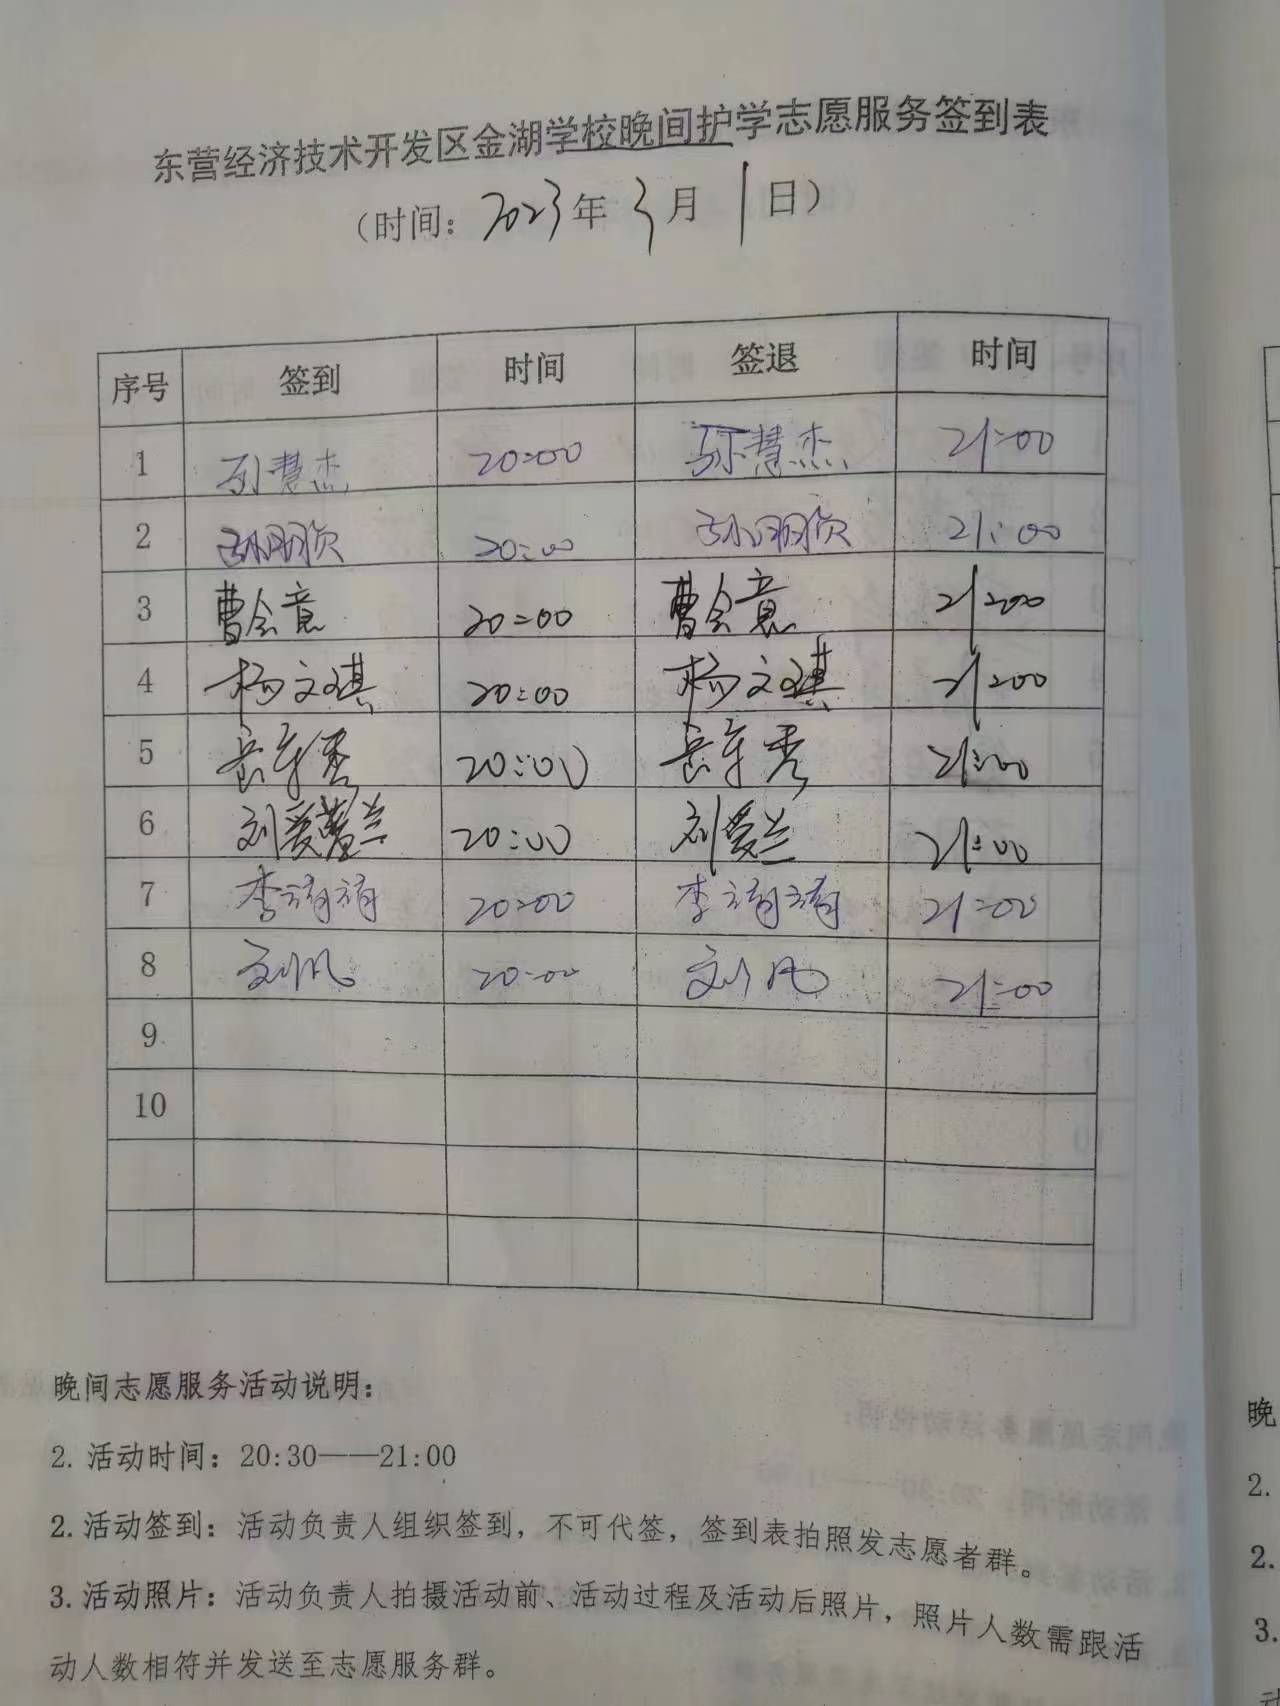 东营经济技术开发区金湖学校晚间护学志愿服务签到表
（时间：2023年3月1日）
序号 签到 时间 签退 时间
1 慧杰 20:00 慧杰 21:00
2 20:00 21:00
3 曹会意 20:00 曹会意 21:00
4 杨文琪 20:00 杨文琪 21:00
5 20:00 21:00
6 刘爱兰 20:00 刘爱兰 21:00
7 李靖靖 20:00 李靖靖 21:00
8 刘凡 20:00 刘凡 21:00
9
10
晚间志愿服务活动说明：
2. 活动时间：20:30——21:00
2. 活动签到：活动负责人组织签到，不可代签，签到表拍照发志愿者群。
3. 活动照片：活动负责人拍摄活动前、活动过程及活动后照片，照片人数需跟活
动人数相符并发送至志愿服务群。
晚
2.
2.
3.